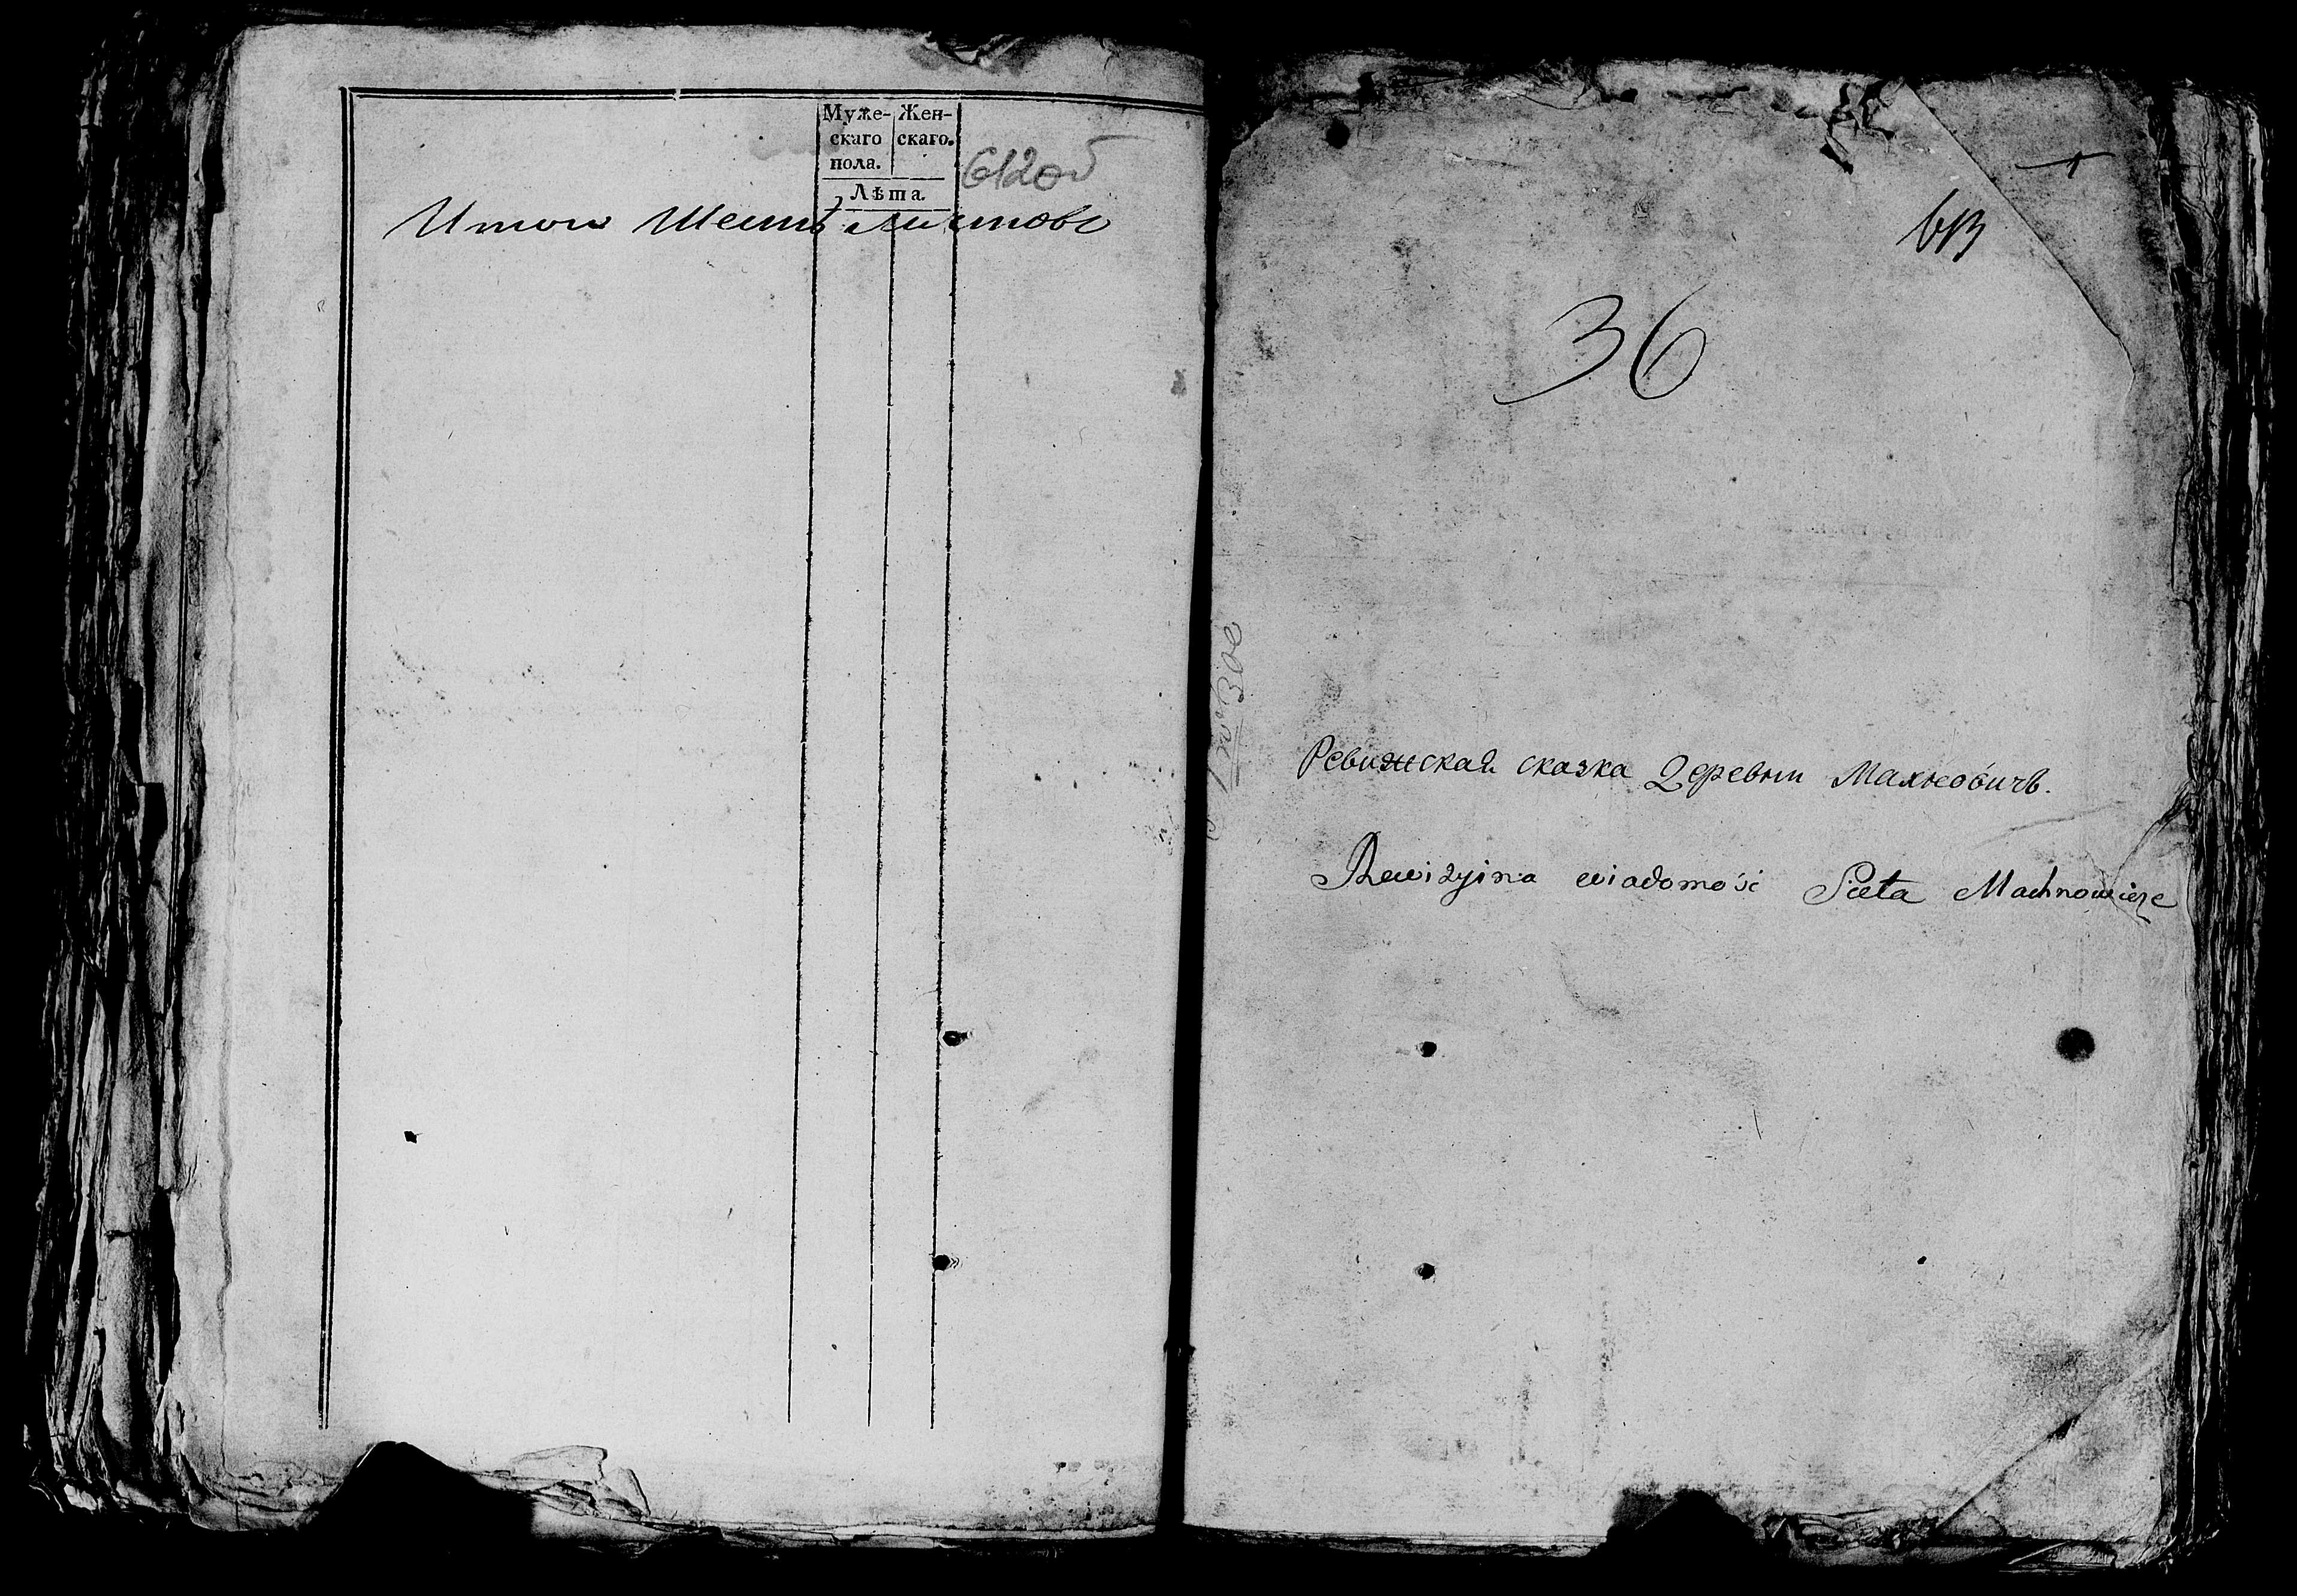 Муже-
скаго
пола.
Жен-
скаго.
Лѣта.
612об
Итого Шесть листовъ
1
613
36
Ревижская сказка деревни Махновичъ.
Rewizyina wiadomość Sieła Machnowicze